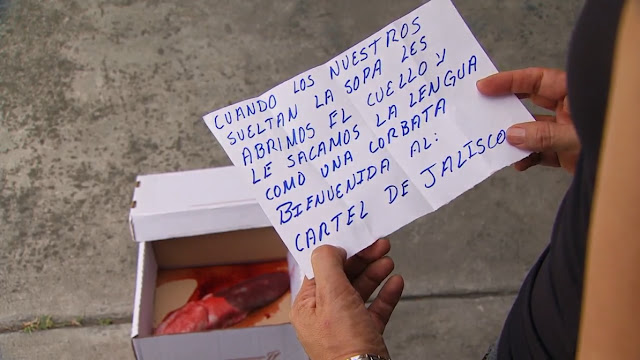 CUANDO LOS NUESTROS
SUELTAN LA SOPA LES
ABRIMOS EL CUELLO Y
LE SACAMOS LA LENGUA
COMO UNA CORBATA
BIENVENIDA AL:
CARTEL DE JALISCO